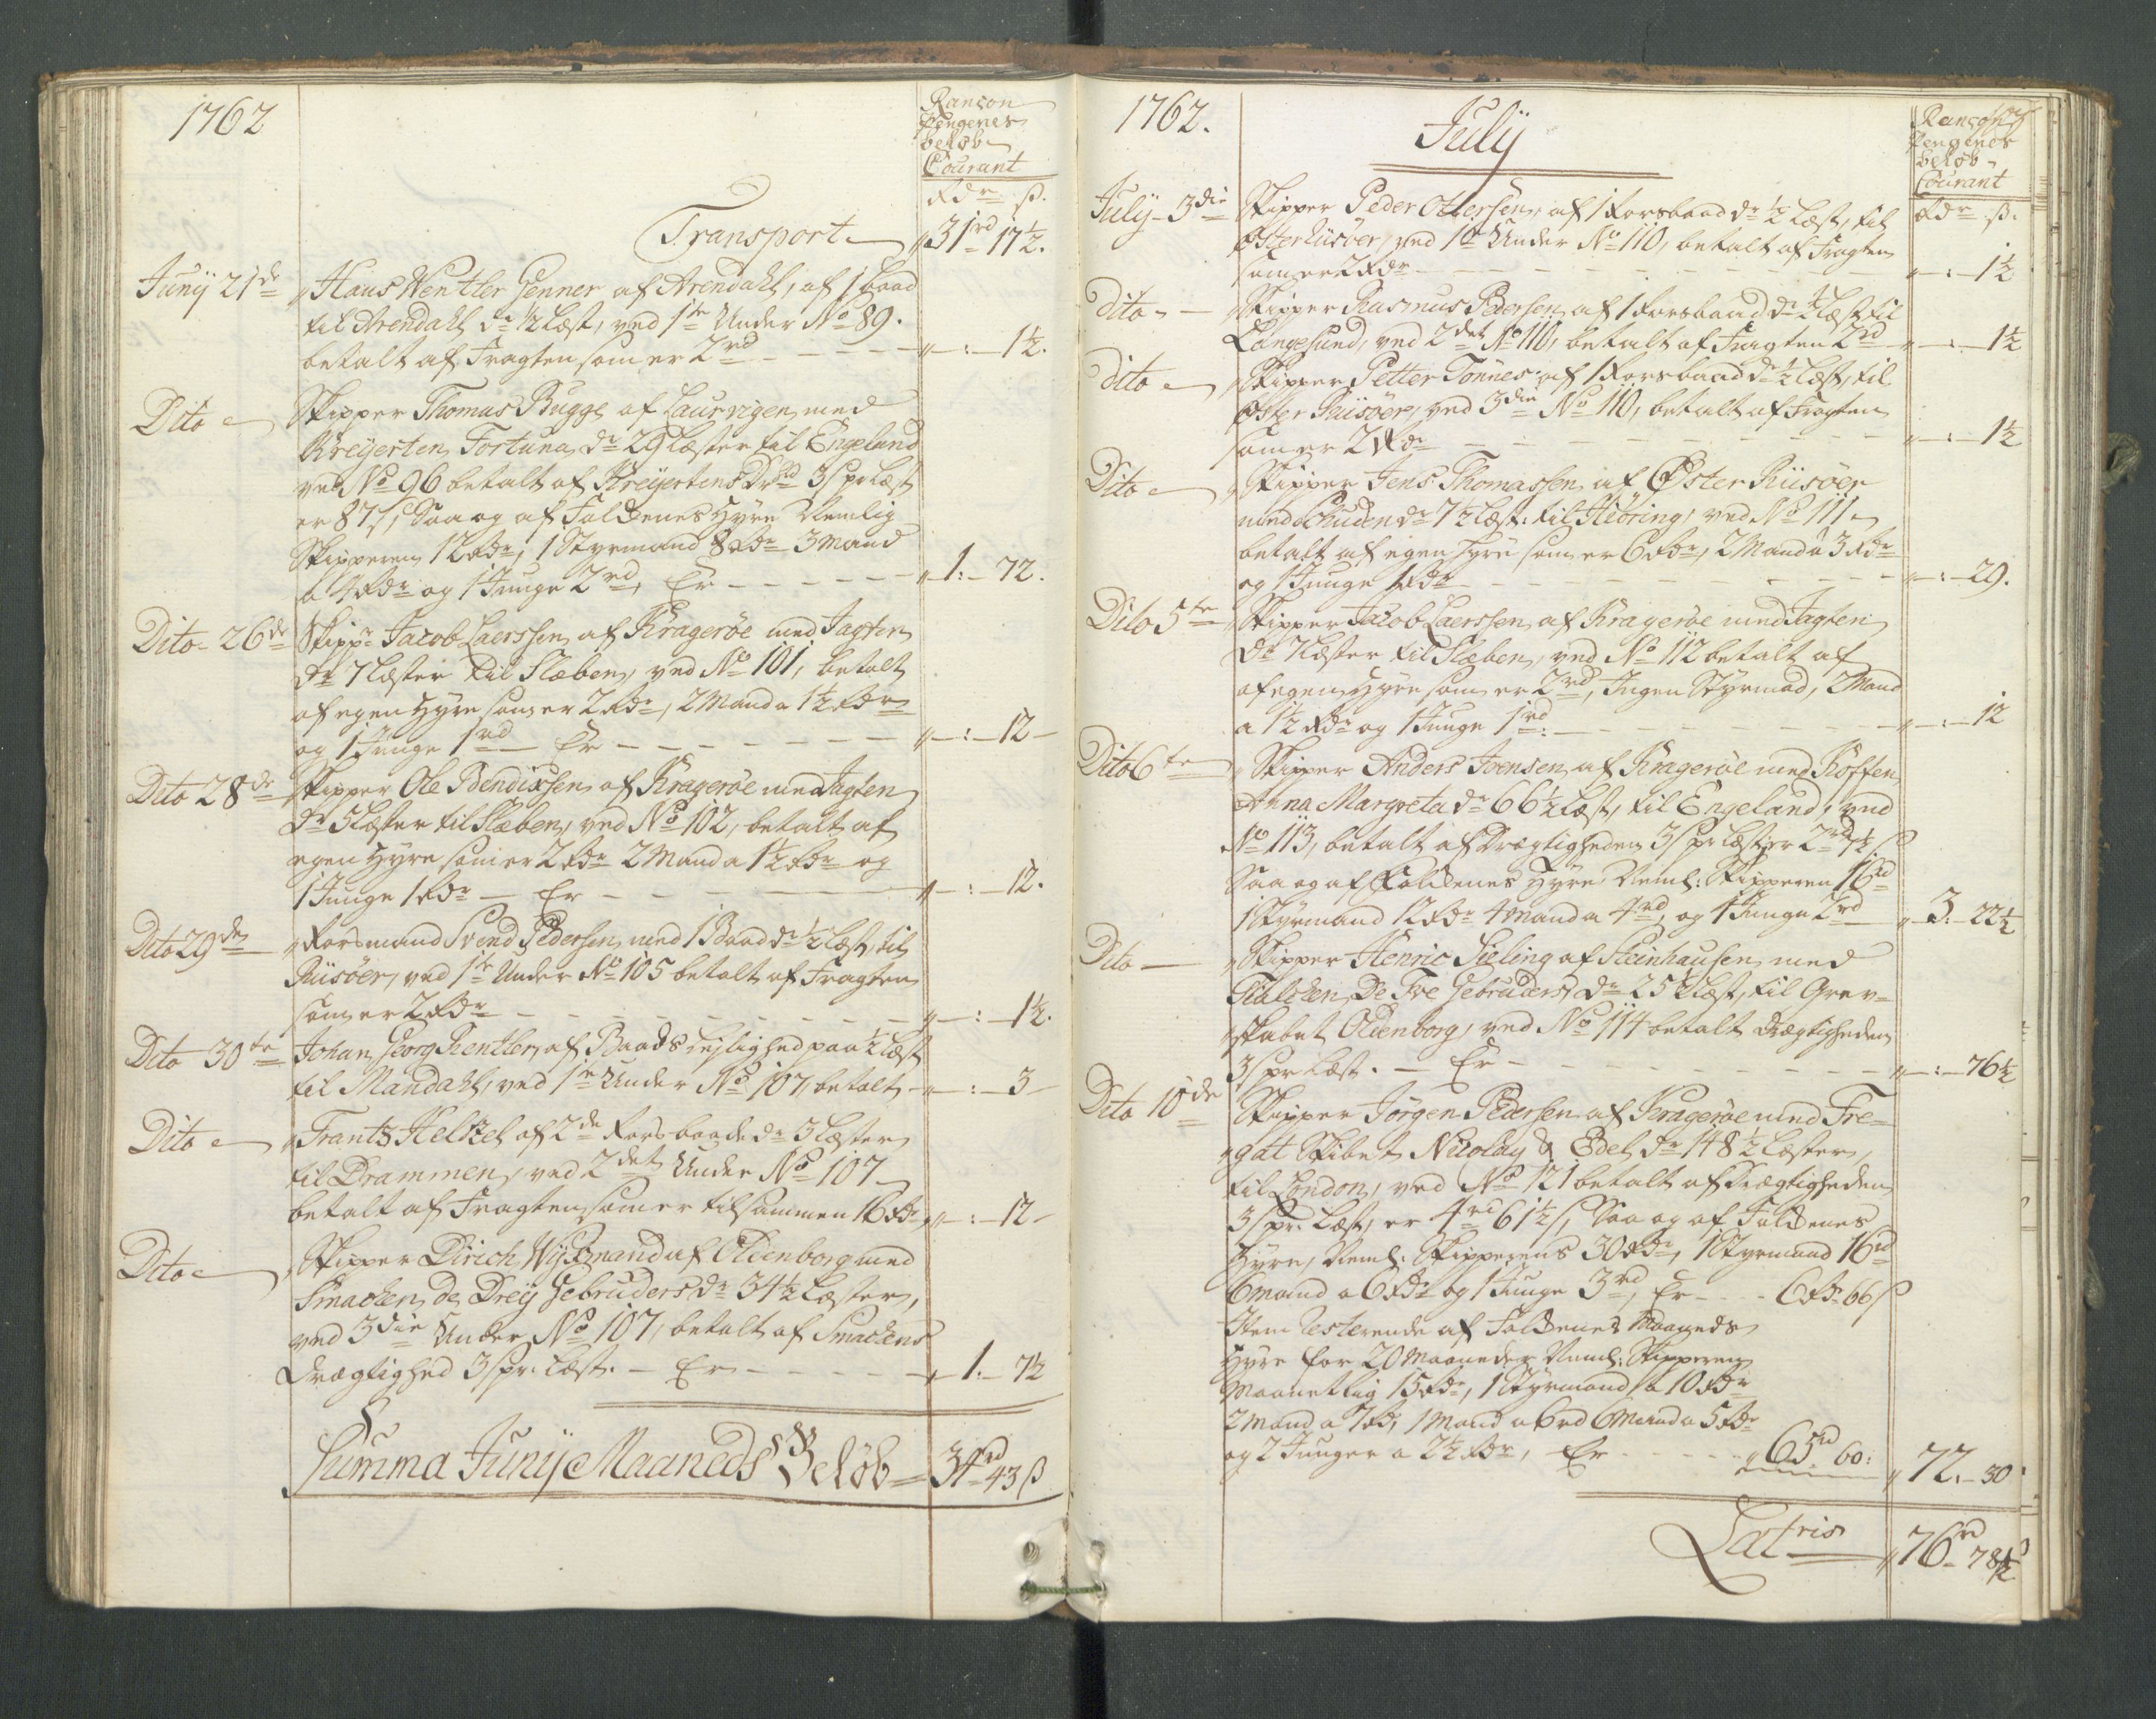 1762
Rançon
Pengenes
beløb
Courant
Rdr ß.
Transport „31rd 17½.
Junÿ 21de „Hans Wentler Jenner af Arendahl, af 1 baad
til Arendahl dr ½ Læst, ved 1te Under No 89.
betalt af Fragten som er 2rd „—:—1½.
Dito Skipper Thomas Bugge af Laurvigen med
Kreÿerten Fortuna dr 29 Læster til Engeland
ved No 96 betalt af Kreÿertens 3ß pr Læst
er 87ß, Saa og af Folkenes Hyre Nemlig
Skipperen 12 Rdr, 1 Styrmand 8 Rdr 3 Mand
a 4 Rdr og 1 Junge 2rd, Er „1:—72.
Dito 26de Skippr Jacob Laerssen af Kragerøe med Jagten
dr 7 Læster til Fleben, ved No 101, betalt
af egen Hyre som er 2 Rdr, 2 Mand a 1½ Rdr
og 1 Junge 1rd Er „—:—12—
Dito 28de Skipper Ole Bendixsen af Kragerøe med Jagten
dr 5 Læster til Fleben, ved No 102, betalt af
egen Hyre som er 2 Rdr 2 Mand a 1½ Rdr og
1 Junge 1 Rdr — Er „—:—12.
Dito 29de „Forsmand Svend Pedersen med 1 Baad dr ½ Læst, til
Riisöer, ved 1te Under No 105 betalt af Fragten
som er 2 Rdr „—:—1½.
Dito 30te Johan Georg Rentler, af Baads Lejlighed paa ½ Læst
til Mandahl, ved 1te Under No 107, betalt „—:—3—
Dito „Frantz Helzel af 2de Fors baade dr 3 Læster
til Drammen, ved 2det Under No 107
betalt af Fragten som er tilsammen 16 Rdr, „—:—12—
Dito „Skipper Dirich Wÿchmand af Oldenborg med
Smacken de Dreÿ Gebruders dr 34½ Læster,
ved 3die Under No 107, betalt af Smackens
Drægtighed 3ß pr. Læst. — Er „1.—7½
Summa Junÿ Maaneds Beløb 34rd 43ß
1762.
Julÿ
Rançon
Pengenes
beløb
Courant
Rdr ß.
Julÿ 3die Skipper Peder Ottersen, af 1 Forsbaad dr ½ Læst, til
Østerriisöer, ved 1te Under No 110, betalt af Fragten
som er 2 Rdr „—:—1½
Dito „Skipper Rasmus Pedersen af 1 Forsbaad dr ½ Læst til
Langesund, ved 2det No 110, betalt af Fragten 2rd „—:—1½
Dito „Skipper Petter Tönnes: af 1 Forsbaad dr ½ Læst, til
Øster Riisöer, ved 3die No 110, betalt af Fragten
som er 2 Rdr „—:—1½
Dito „Skipper Jens Thomassen af Øster Riisöer
med Skuden dr 7½ Læst: til Hiöring, ved No 111
betalt af egen Hyre som er 6 Rdr, 2 Mand a 3 Rdr
og 1 Junge 1 Rdr „—:—29.
Dito 5te „Skipper Jacob Laerssen af Kragerøe med Jagten
dr 7 Læster til Fleben, ved No 112 betalt af
af egen Hyre som er 2rd, Ingen Styrmad, 2 Mand
a 1½ Rdr og 1 Junge 1rd: „—:—12
Dito 6te „Skipper Anders Ivensen af Kragerøe med Koffen
Anna Margreta dr 66½ Læst, til Engeland, ved
No 113, betalt af Drægtigheden 3ß pr Læst er 2rd 7½ß
Saa og af Folkenes Hyre Neml: Skipperen 16rd
1 Styrmand 12 Rdr 4 Mand a 4rd, og 1 Junge 2rd „3.—22½
Dito „Skipper Henric Sieling af Steinhausen med
Tialcken De Tve Gebruders, dr 25½ Læst, til Grev-
„skabet Oldenborg, ved No 114 betalt Drægtigheden
3ß pr Læst. — Er — „—:—76½
Dito 10de Skipper Jörgen Pedersen af Kragerøe med Fre-
„gat Skibet Nicolay & Edel dr 148½ Læster,
til London, ved No 121 betalt af Drægtigheden
3ß pr. Læst, er 4rd 61½ß, Saa og af Folkenes
Hyre, Neml: Skipperens 30 Rdr, 1 Styrmand 16rd
6 mand a 6 Rdr og 1 Junge 3rd, Er 6 Rdr 66ß
Item resterende af Folkenes Maaneds
Hyre for 20 Maaneder Neml: Skipperen
Maanetlig 15 Rdr, 1 Styrmand a 10 Rdr
2 Mand a 7 Rd, 1 Mand a 6rd 6 Mand a 5 Rdr
og 2 Junger a 2½ Rdr, Er „65rd 60: „72.—30
Latris „76rd 78½